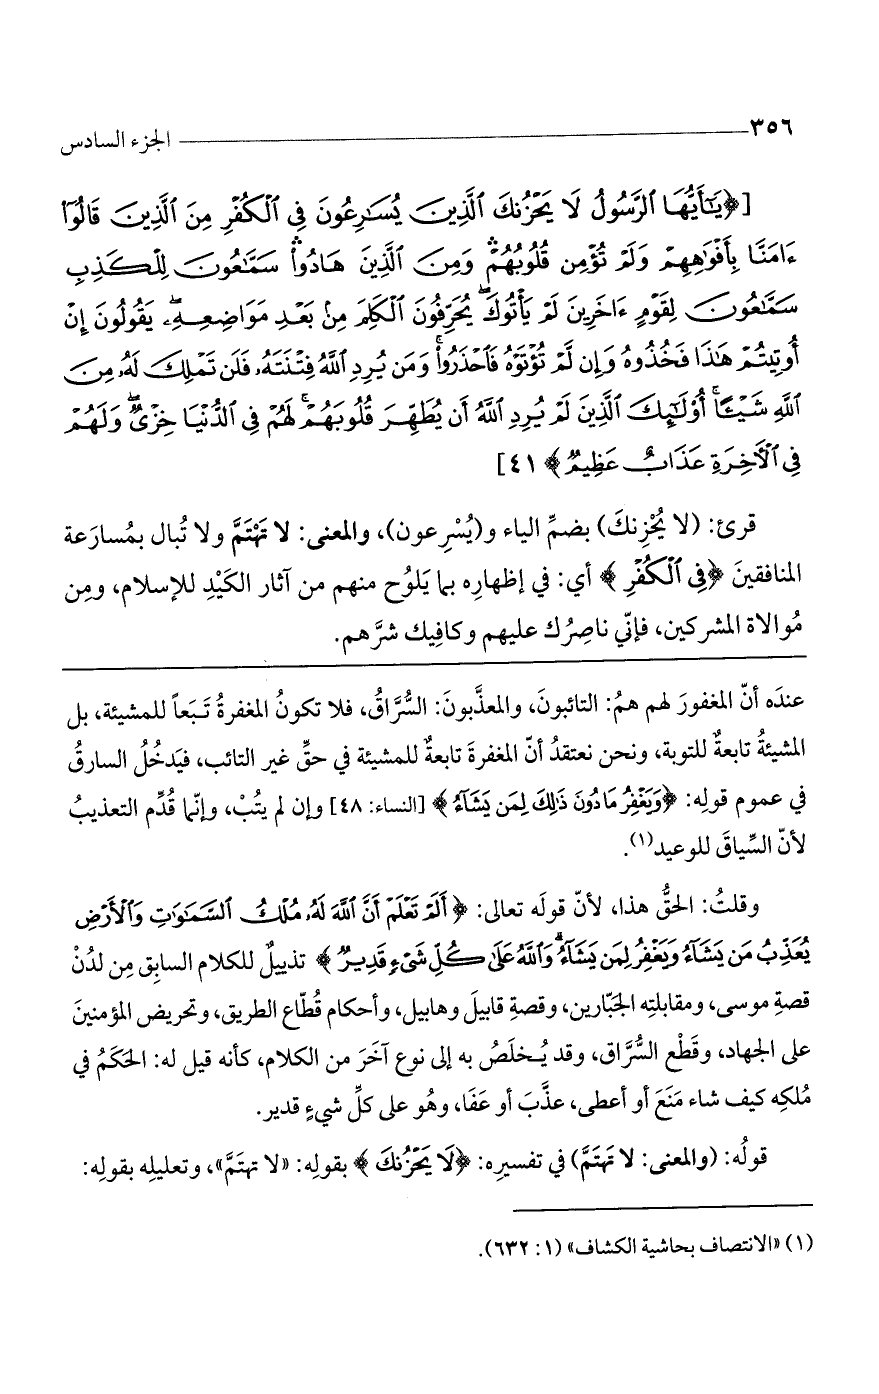 ٣٥٦ الجزء السادس
[﴿يَٰٓأَيُّهَا ٱلرَّسُولُ لَا يَحْزُنكَ ٱلَّذِينَ يُسَٰرِعُونَ فِى ٱلْكُفْرِ مِنَ ٱلَّذِينَ قَالُوٓا۟
ءَامَنَّا بِأَفْوَٰهِهِمْ وَلَمْ تُؤْمِن قُلُوبُهُمْ ۛ وَمِنَ ٱلَّذِينَ هَادُوا۟ ۛ سَمَّٰعُونَ لِلْكَذِبِ
سَمَّٰعُونَ لِقَوْمٍ ءَاخَرِينَ لَمْ يَأْتُوكَ ۖ يُحَرِّفُونَ ٱلْكَلِمَ مِنۢ بَعْدِ مَوَاضِعِهِۦ ۖ يَقُولُونَ إِنْ
أُوتِيتُمْ هَٰذَا فَخُذُوهُ وَإِن لَّمْ تُؤْتَوْهُ فَٱحْذَرُوا۟ ۚ وَمَن يُرِدِ ٱللَّهُ فِتْنَتَهُۥ فَلَن تَمْلِكَ لَهُۥ مِنَ
ٱللَّهِ شَيْـًٔا ۚ أُو۟لَٰٓئِكَ ٱلَّذِينَ لَمْ يُرِدِ ٱللَّهُ أَن يُطَهِّرَ قُلُوبَهُمْ ۚ لَهُمْ فِى ٱلدُّنْيَا خِزْىٌ ۖ وَلَهُمْ
فِى ٱلْءَاخِرَةِ عَذَابٌ عَظِيمٌ﴾ ٤١]
قرئ: (لا يُحْزِنكَ) بضمِّ الياء و(يُسْرِعون)، والمعنى: لا تَهْتَمَّ ولا تُبال بمُسارَعة
المنافقينَ ﴿فِى ٱلْكُفْرِ﴾ أي: في إظهارِه بما يَلوُح منهم من آثار الكَيْدِ للإسلام، ومِن
مُوالاة المشركين، فإنّي ناصِرُك عليهم وكافِيك شرَّهم.
عندَه أنّ المغفورَ لهم همُ: التائبونَ، والمعذَّبونَ: السُّرَّاقُ، فلا تكونُ المغفرةُ تَبَعاً للمشيئة، بل
المشيئةُ تابعةٌ للتوبة، ونحن نعتقدُ أنّ المغفرةَ تابعةٌ للمشيئة في حقِّ غير التائب، فيَدخُلُ السارقُ
في عموم قولِه: ﴿وَيَغْفِرُ مَا دُونَ ذَٰلِكَ لِمَن يَشَآءُ﴾ [النساء: ٤٨] وإن لم يتُبْ، وإنّما قُدِّم التعذيبُ
لأنّ السِّياقَ للوعيد(١).
وقلتُ: الحقُّ هذا، لأنّ قولَه تعالى: ﴿أَلَمْ تَعْلَمْ أَنَّ ٱللَّهَ لَهُۥ مُلْكُ ٱلسَّمَٰوَٰتِ وَٱلْأَرْضِ
يُعَذِّبُ مَن يَشَآءُ وَيَغْفِرُ لِمَن يَشَآءُ ۗ وَٱللَّهُ عَلَىٰ كُلِّ شَىْءٍ قَدِيرٌ﴾ تذييلٌ للكلام السابِق مِن لدُنْ
قصةِ موسى، ومقابلتِه الجَبّارين، وقصةِ قابيلَ وهابيل، وأحكام قُطّاع الطريق، وتحريض المؤمنينَ
على الجهاد، وقَطْع السُّرَّاق، وقد يُخلَصُ به إلى نوع آخَرَ من الكلام، كأنه قيل له: الحَكَمُ في
مُلكِه كيف شاء مَنَعَ أو أعطى، عذَّبَ أو عَفَا، وهُو على كلِّ شيءٍ قدير.
قولُه: (والمعنى: لا تَهتَمَّ) في تفسيرِه: ﴿لَا يَحْزُنكَ﴾ بقولِه: «لا تهتمَّ»، وتعليلِه بقولِه:
(١) «الانتصاف بحاشية الكشاف» (١: ٦٣٢).